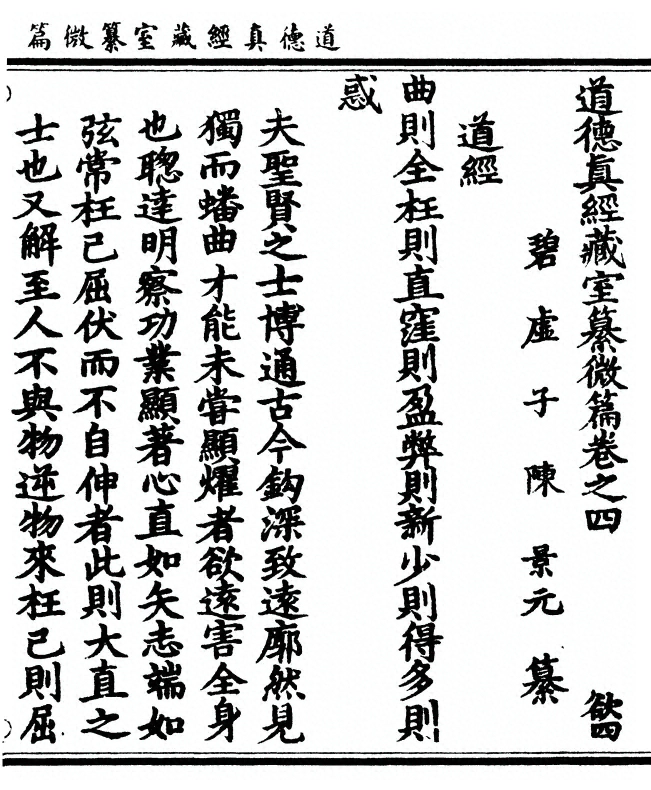 道德真經藏室纂微篇
道德眞經藏室纂微篇卷之四 欲四
碧虛子陳景元纂
道經
曲則全枉則直窪則盈弊則新少則得多則
惑
夫聖賢之士博通古今鈎深致遠廓然見
獨而蟠曲才能未甞顯燿者欲遠害全身
也聦達明察功業顯著心直如矢志端如
弦常枉己屈伏而不自伸者此則大直之
士也又解至人不與物逆物來枉己則屈